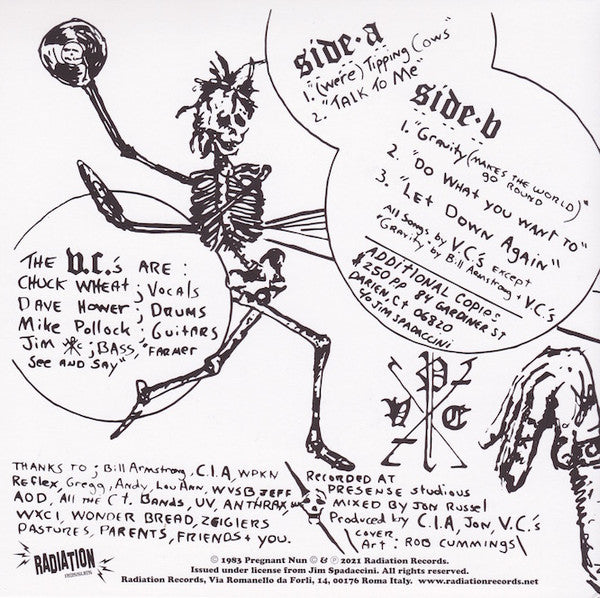 side·a
1. "(we're) Tipping Cows"
2. "TALK TO ME"
side·b
1. "Gravity (MAKES THE WORLD)"
GO ROUND
2. "DO WHAT YOU WANT TO"
3. "LET DOWN AGAIN"
All Songs by V.C.'s EXCEPT
"GRAVITY" by Bill Armstrong · V.C.'s
ADDITIONAL COPIES
$2.50 PP 84 GARDINER ST
DARIEN, CT 06820
c/o JIM SPADACCINI
THE V.C.'s ARE:
CHUCK WHEAT; Vocals
DAVE HOWER; DRUMS
Mike Pollock; Guitars
Jim ; BASS, "FARMER
See AND SAY"
V P C
THANKS TO; Bill Armstrong, C.I.A, WPKN
Reflex, Gregg, Andy, Lou Ann, WVSB JEFF
AOD, All the Ct. Bands, UV, ANTHRAX
WXCI, WONDER BREAD, ZEIGLERS
PASTURES, PARENTS, FRIENDS + YOU.
RECORDED AT
PRESENSE studious
MIXED BY JON RUSSEL
Produced by C.I.A, JON, V.C.'s
COVER
Art: ROB CUMMINGS
RADIATION
© 1983 Pregnant Nun © & ℗ 2021 Radiation Records.
Issued under license from Jim Spadaccini. All rights reserved.
Radiation Records, Via Romanello da Forlì, 14, 00176 Roma Italy. www.radiationrecords.net